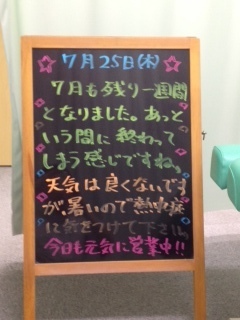 7月25日(木)
7月も残り一週間
となりました。あっと
いう間に終わって
しまう感じですね。
天気は良くないです
が、暑いので熱中症
に気をつけて下さい。
今日も元気に営業中!!